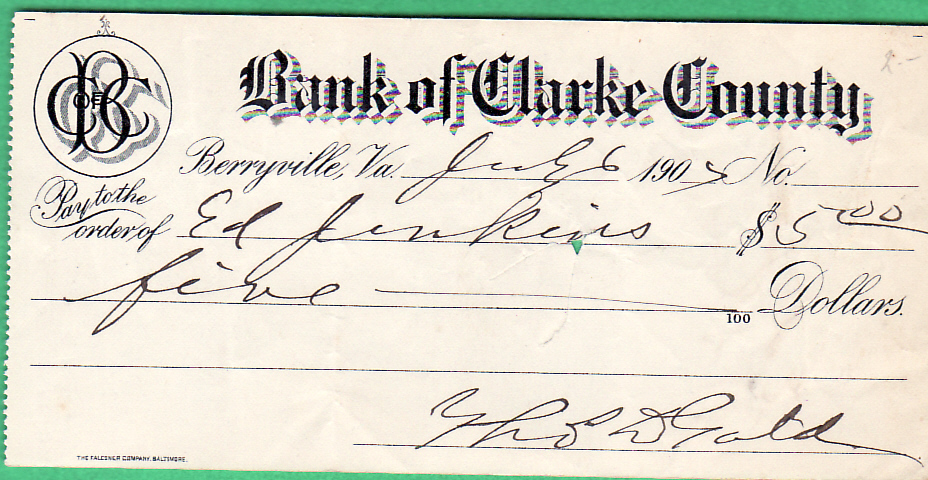 Bank of Clarke County
Berryville, Va. July 6 190 No.
Pay to the
order of Ed Jenkins $5 00
five 100 Dollars.
Thos D Gold
THE FALCONER COMPANY, BALTIMORE.